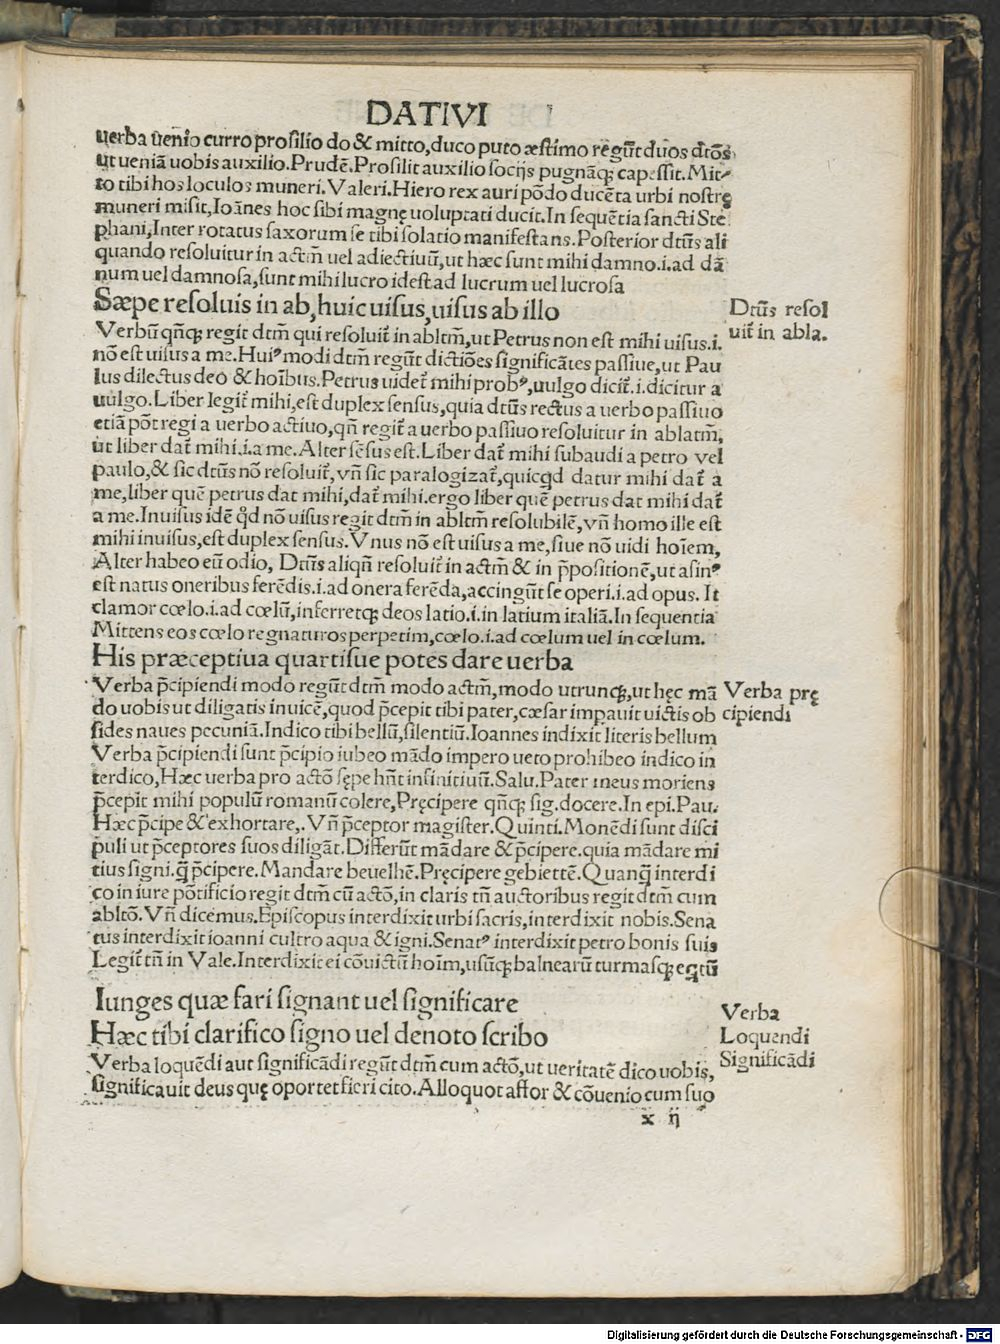 DATIVI
uerba ūenio curro prosilio do & mitto, duco puto æstimo regūt duos dtōs
ut ueniā uobis auxilio. Prudē. Prosilit auxilio socijs pugnāq; capessit. Mit⸗
to tibi hos loculos muneri. Valeri. Hiero rex auri pōdo ducēta urbi nostrę
muneri misit, Ioānes hoc sibi magnę uoluptati ducit. In sequētia sancti Ste
phani, Inter rotatus saxorum se tibi solatio manifestans. Posterior dtūs ali
quando resoluitur in actm̄ uel adiectiuū, ut hæc sunt mihi damno .i. ad dā
num uel damnosa, sunt mihi lucro id est ad lucrum uel lucrosa
Sæpe resoluis in ab, huic uisus, uisus ab illo
Dtūs resol
uit̄ in abla.
Verbū qn̄q; regit dtm̄ qui resoluit̄ in abltm̄, ut Petrus non est mihi uisus .i.
nō est uisus a me. Huiꝰmodi dtm̄ regūt dictiōes significātes passiue, ut Pau
lus dilectus deo & hoībus. Petrus uidet̄ mihi probꝰ, uulgo dicit̄ .i. dicitur a
uulgo. Liber legit̄ mihi, est duplex sensus, quia dtūs rectus a uerbo passiuo
etiā pōt regi a uerbo actiuo, qn̄ regit̄ a uerbo passiuo resoluitur in ablatm̄,
ut liber dat̄ mihi .i. a me. Alter sēsus est. Liber dat̄ mihi subaudi a petro vel
paulo, & sic dtūs nō resoluit̄, vn̄ sic paralogizat̄, quicqd datur mihi dat̄ a
me, liber quē petrus dat mihi, dat̄ mihi. ergo liber quē petrus dat mihi dat̄
a me. Inuisus idē qd̄ nō uisus regit dtm̄ in abltm̄ resolubilē, vn̄ homo ille est
mihi inuisus, est duplex sensus. Vnus nō est uisus a me, siue nō uidi hoīem,
Alter habeo eū odio, Dtūs aliqn̄ resoluit̄ in actm̄ & in p̄positionē, ut asinꝰ
est natus oneribus ferēdis .i. ad onera ferēda, accingūt se operi .i. ad opus. It
clamor cœlo .i. ad cœlū, inferretq; deos latio .i. in latium italiā. In sequentia
Mittens eos cœlo regnaturos perpetim, cœlo .i. ad cœlum uel in cœlum.
His præceptiua quartisue potes dare uerba
Verba prę
cipiendi
Verba p̄cipiendi modo regūt dtm̄ modo actm̄, modo utrunq;, ut hęc mā
do uobis ut diligatis inuicē, quod p̄cepit tibi pater, cæsar impauit uictis ob
sides naues pecuniā. Indico tibi bellū, silentiū. Ioannes indixit literis bellum
Verba p̄cipiendi sunt p̄cipio iubeo mādo impero ueto prohibeo indico in
terdico, Hæc uerba pro actō sępe hn̄t infinitiuū. Salu. Pater meus moriens
p̄cepit mihi populū romanū colere, Pręcipere qn̄q; sig. docere. In epi. Pau.
Hæc p̄cipe & exhortare,. Vn̄ p̄ceptor magister. Quinti. Monēdi sunt disci
puli ut p̄ceptores suos diligāt. Differūt mādare & p̄cipere. quia mādare mi
tius signi. q̄ p̄cipere. Mandare beuelhē. Pręcipere gebiettē. Quanq̄ interdi
co in iure pōtificio regit dtm̄ cū actō, in claris tn̄ auctoribus regit dtm̄ cum
abltō. Vn̄ dicemus. Episcopus interdixit urbi sacris, interdixit nobis. Sena
tus interdixit ioanni cultro aqua & igni. Senatꝰ interdixit petro bonis suis
Legit̄ tn̄ in Vale. Interdixit ei cōuictū hoīm, usūq; balnearū turmasq; eqtū
Iunges quæ fari signant uel significare
Hæc tibi clarifico signo uel denoto scribo
Verba
Loquendi
Significādi
Verba loquēdi aut significādi regūt dtm̄ cum actō, ut ueritatē dico uobis,
significauit deus quę oportet fieri cito. Alloquor affor & cōuenio cum suo
x ij
Digitalisierung gefördert durch die Deutsche Forschungsgemeinschaft - DFG